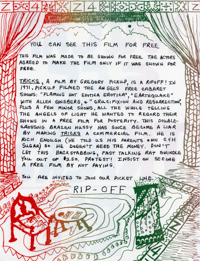 YOU CAN SEE THIS FILM FOR FREE
THIS FILM WAS MADE TO BE SHOWN FOR FREE. THE ACTORS
AGREED TO MAKE THE FILM ONLY IF IT WAS SHOWN FOR
FREE.
TRICKS, A FILM BY GREGORY PICKUP, IS A RIPOFF! IN
1971, PICKUP FILMED THE ANGELS FREE CABARET
SHOWS: "FLAMING HOT EXOTICA EROTICA", "EARTHQUAKE"
WITH ALLEN GINSBERG, & "CRUCIFIXION AND RESURRECTION,"
PLUS A FEW MINOR SHOWS, ALL THE WHILE TELLING
THE ANGELS OF LIGHT HE WANTED TO RECORD THEIR
SHOWS IN A FREE FILM FOR POSTERITY. THIS DOUBLE-
CROSSING BRAZEN HUSSY HAS SINCE BECOME A LIAR
BY MAKING TRICKS A COMMERCIAL FILM. HE IS
RICH ENOUGH (HE TOLD US HIS PARENTS OWN C&H
SUGAR) SO HE DOESN'T NEED THE MONEY. DON'T
LET THIS BACKSTABBING, FAST TALKING RAT SWINDLE
YOU OUT OF $2.50. PROTEST! INSIST ON SEEING
A FREE FILM BY NOT PAYING.
YOU ARE INVITED TO JOIN OUR PICKET LINE.
RIP-OFF